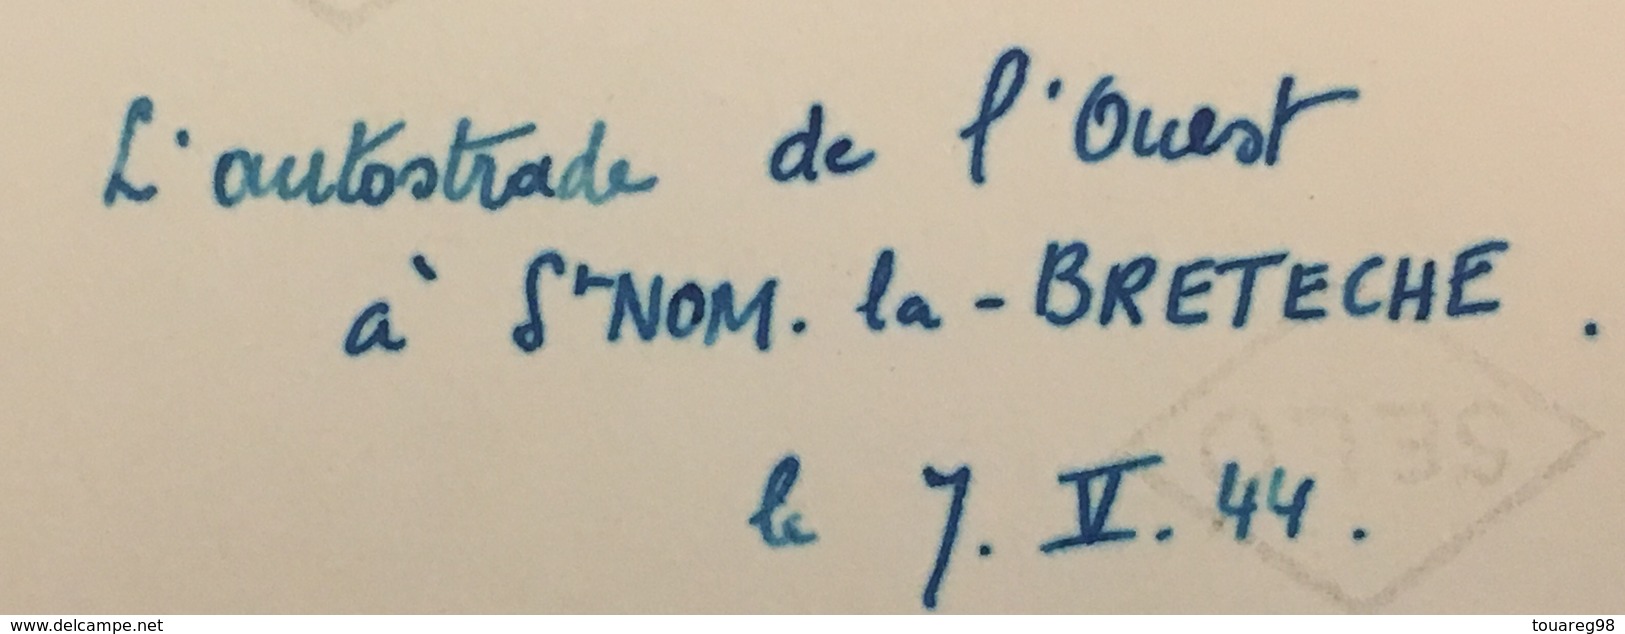 L'autostrade de l'Ouest
à St NOM. la - BRETECHE .
le 7. V. 44 .
SELO
www.delcampe.net
touareg98